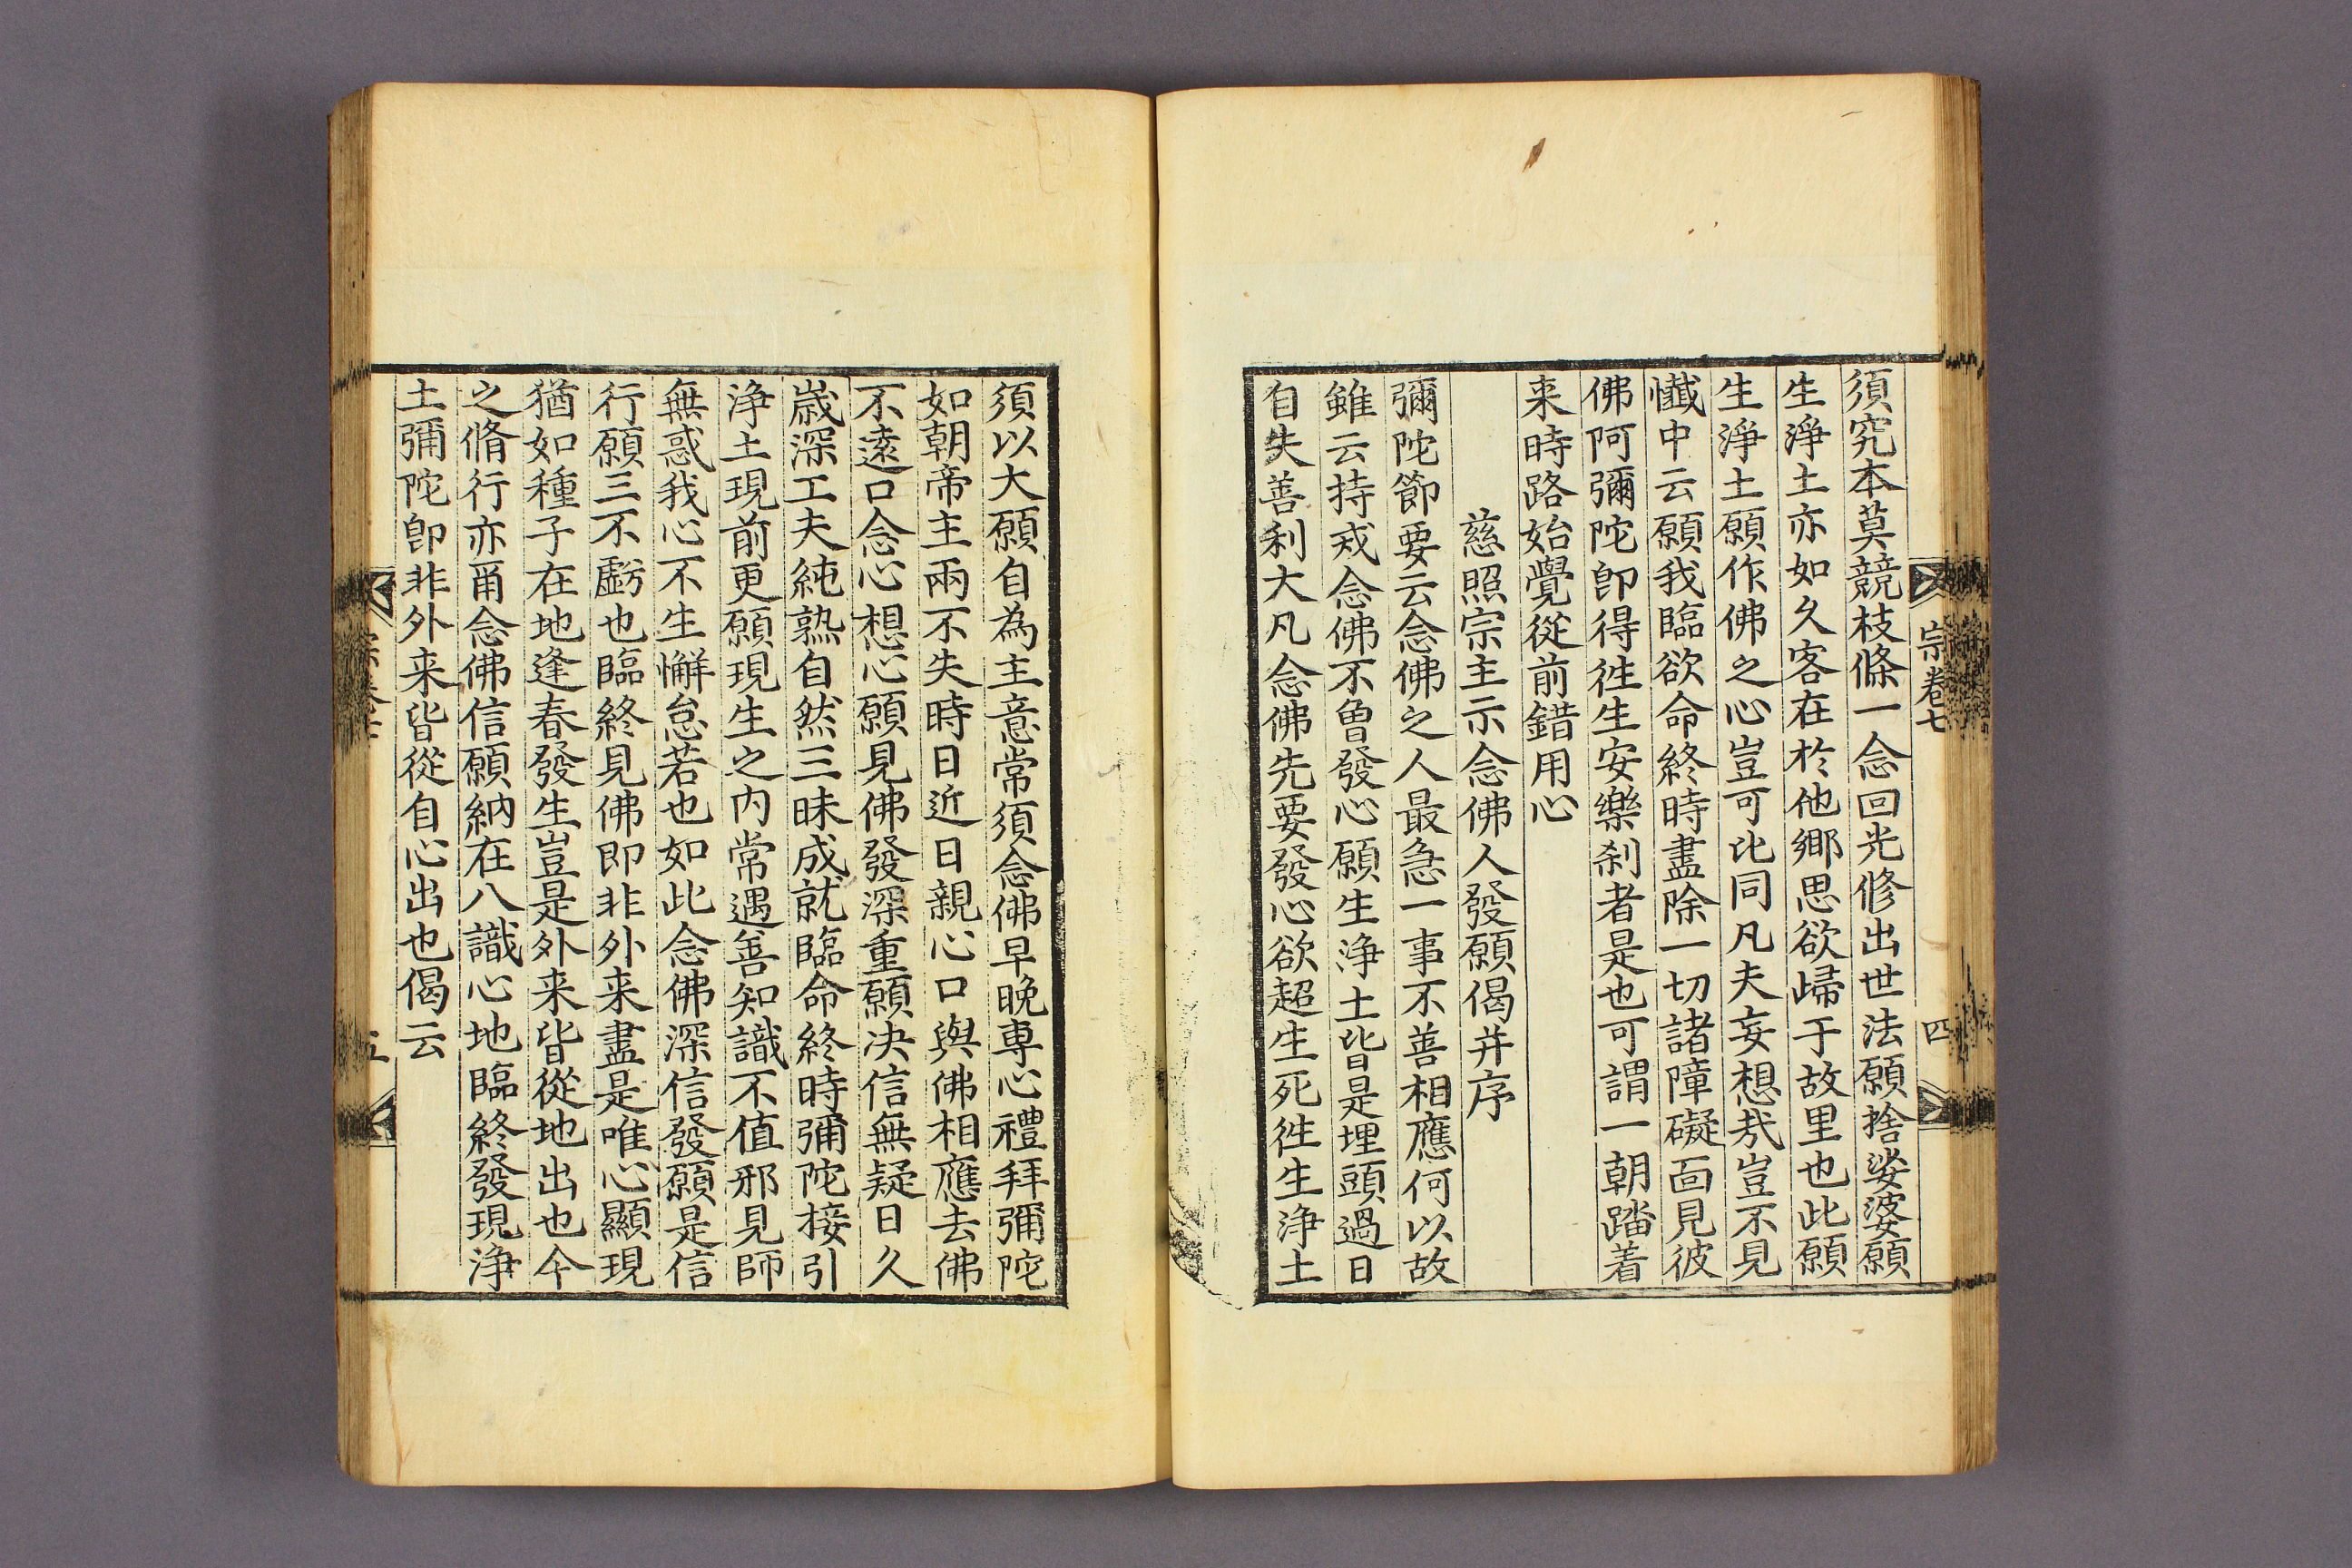 宗卷七
四
須究本莫競枝條一念回光修出世法願捨娑婆願
生淨土亦如久客在於他鄉思欲歸于故里也此願
生淨土願作佛之心豈可比同凡夫妄想㢤豈不見
懺中云願我臨欲命終時盡除一切諸障礙面見彼
佛阿彌陀即得徃生安樂刹者是也可謂一朝踏着
来時路始覺從前錯用心
慈照宗主示念佛人發願偈并序
彌陀節要云念佛之人最急一事不善相應何以故
雖云持戒念佛不曾發心願生淨土皆是埋頭過日
自失善利大凡念佛先要發心欲超生死徃生淨土
須以大願自為主意常須念佛早晚專心禮拜彌陀
如朝帝主兩不失時日近日親心口與佛相應去佛
不遠口念心想心願見佛發深重願决信無疑日久
歲深工夫純熟自然三昧成就臨命終時彌陀接引
淨土現前更願現生之内常遇善知識不值邪見師
無惑我心不生懈怠若也如此念佛深信發願是信
行願三不虧也臨終見佛即非外来盡是唯心顯現
猶如種子在地逢春發生豈是外来皆從地出也今
之脩行亦甭念佛信願納在八識心地臨終發現淨
土彌陀即非外来皆從自心出也偈云
五